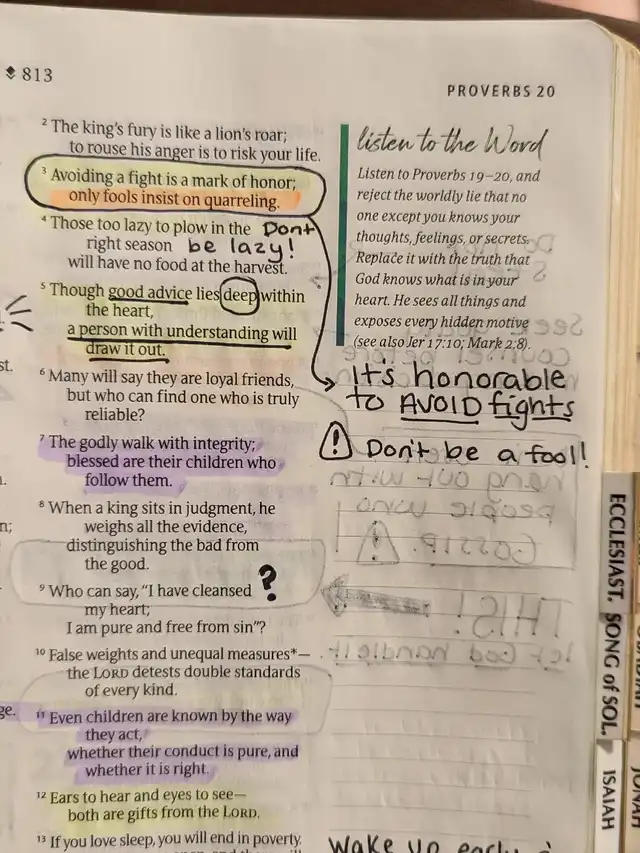 813
PROVERBS 20
2 The king's fury is like a lion's roar;
to rouse his anger is to risk your life.
3 Avoiding a fight is a mark of honor;
only fools insist on quarreling.
4 Those too lazy to plow in the
right season
will have no food at the harvest.
Don't
be lazy!
5 Though good advice lies deep within
the heart,
a person with understanding will
draw it out.
st.
6 Many will say they are loyal friends,
but who can find one who is truly
reliable?
7 The godly walk with integrity;
blessed are their children who
follow them.
8 When a king sits in judgment, he
n;
weighs all the evidence,
distinguishing the bad from
the good.
9 Who can say, "I have cleansed
my heart;
I am pure and free from sin"?
?
10 False weights and unequal measures*—
the LORD detests double standards
of every kind.
ge.
11 Even children are known by the way
they act,
whether their conduct is pure, and
whether it is right.
12 Ears to hear and eyes to see—
both are gifts from the LORD.
13 If you love sleep, you will end in poverty.
listen to the Word
Listen to Proverbs 19–20, and
reject the worldly lie that no
one except you knows your
thoughts, feelings, or secrets.
Replace it with the truth that
God knows what is in your
heart. He sees all things and
exposes every hidden motive
(see also Jer 17:10; Mark 2:8).
It's honorable
to AVOID fights
! Don't be a fool!
Wake up early
ECCLESIAST.
SONG of SOL.
ISAIAH
JONAH